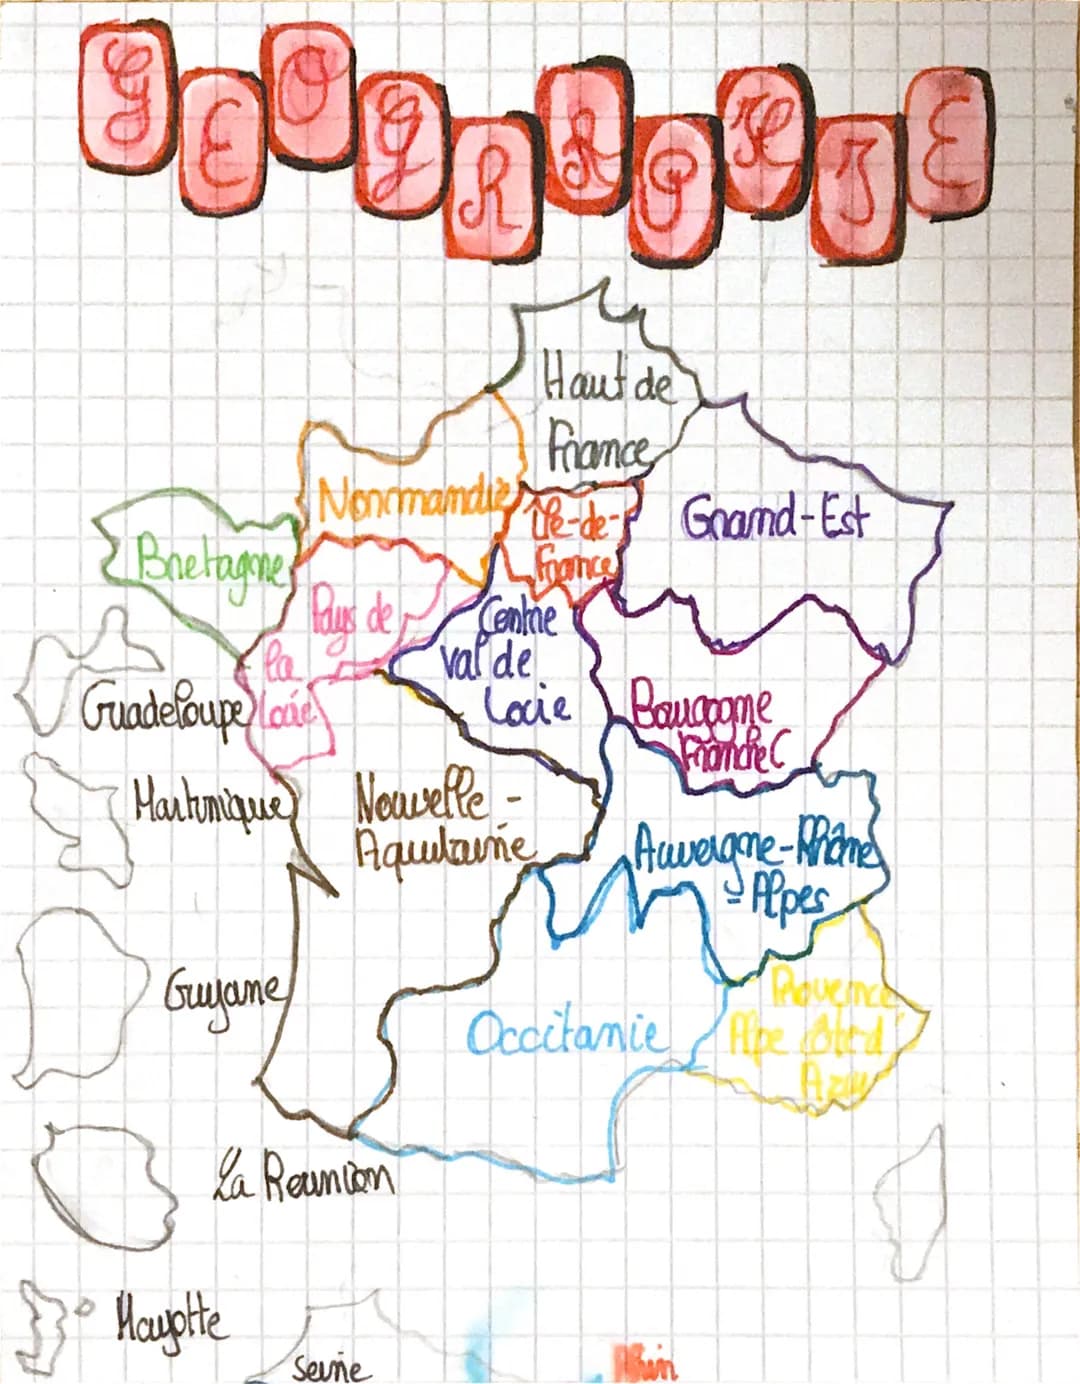 GEOGRAPHIE
Haut de
France
Normandie
Île-de-
France
Grand-Est
Bretagne
Pays de
la
Loire
Centre
val de
Locie
Guadeloupe
Bougogne
Franche C
Martinique
Nouvelle -
Aquitaine
Auvergne-Rhône
-Alpes
Guyane
Occitanie
Provence
Alpe côte d'
Azur
La Reunion
Mayotte
Seine
Rhin